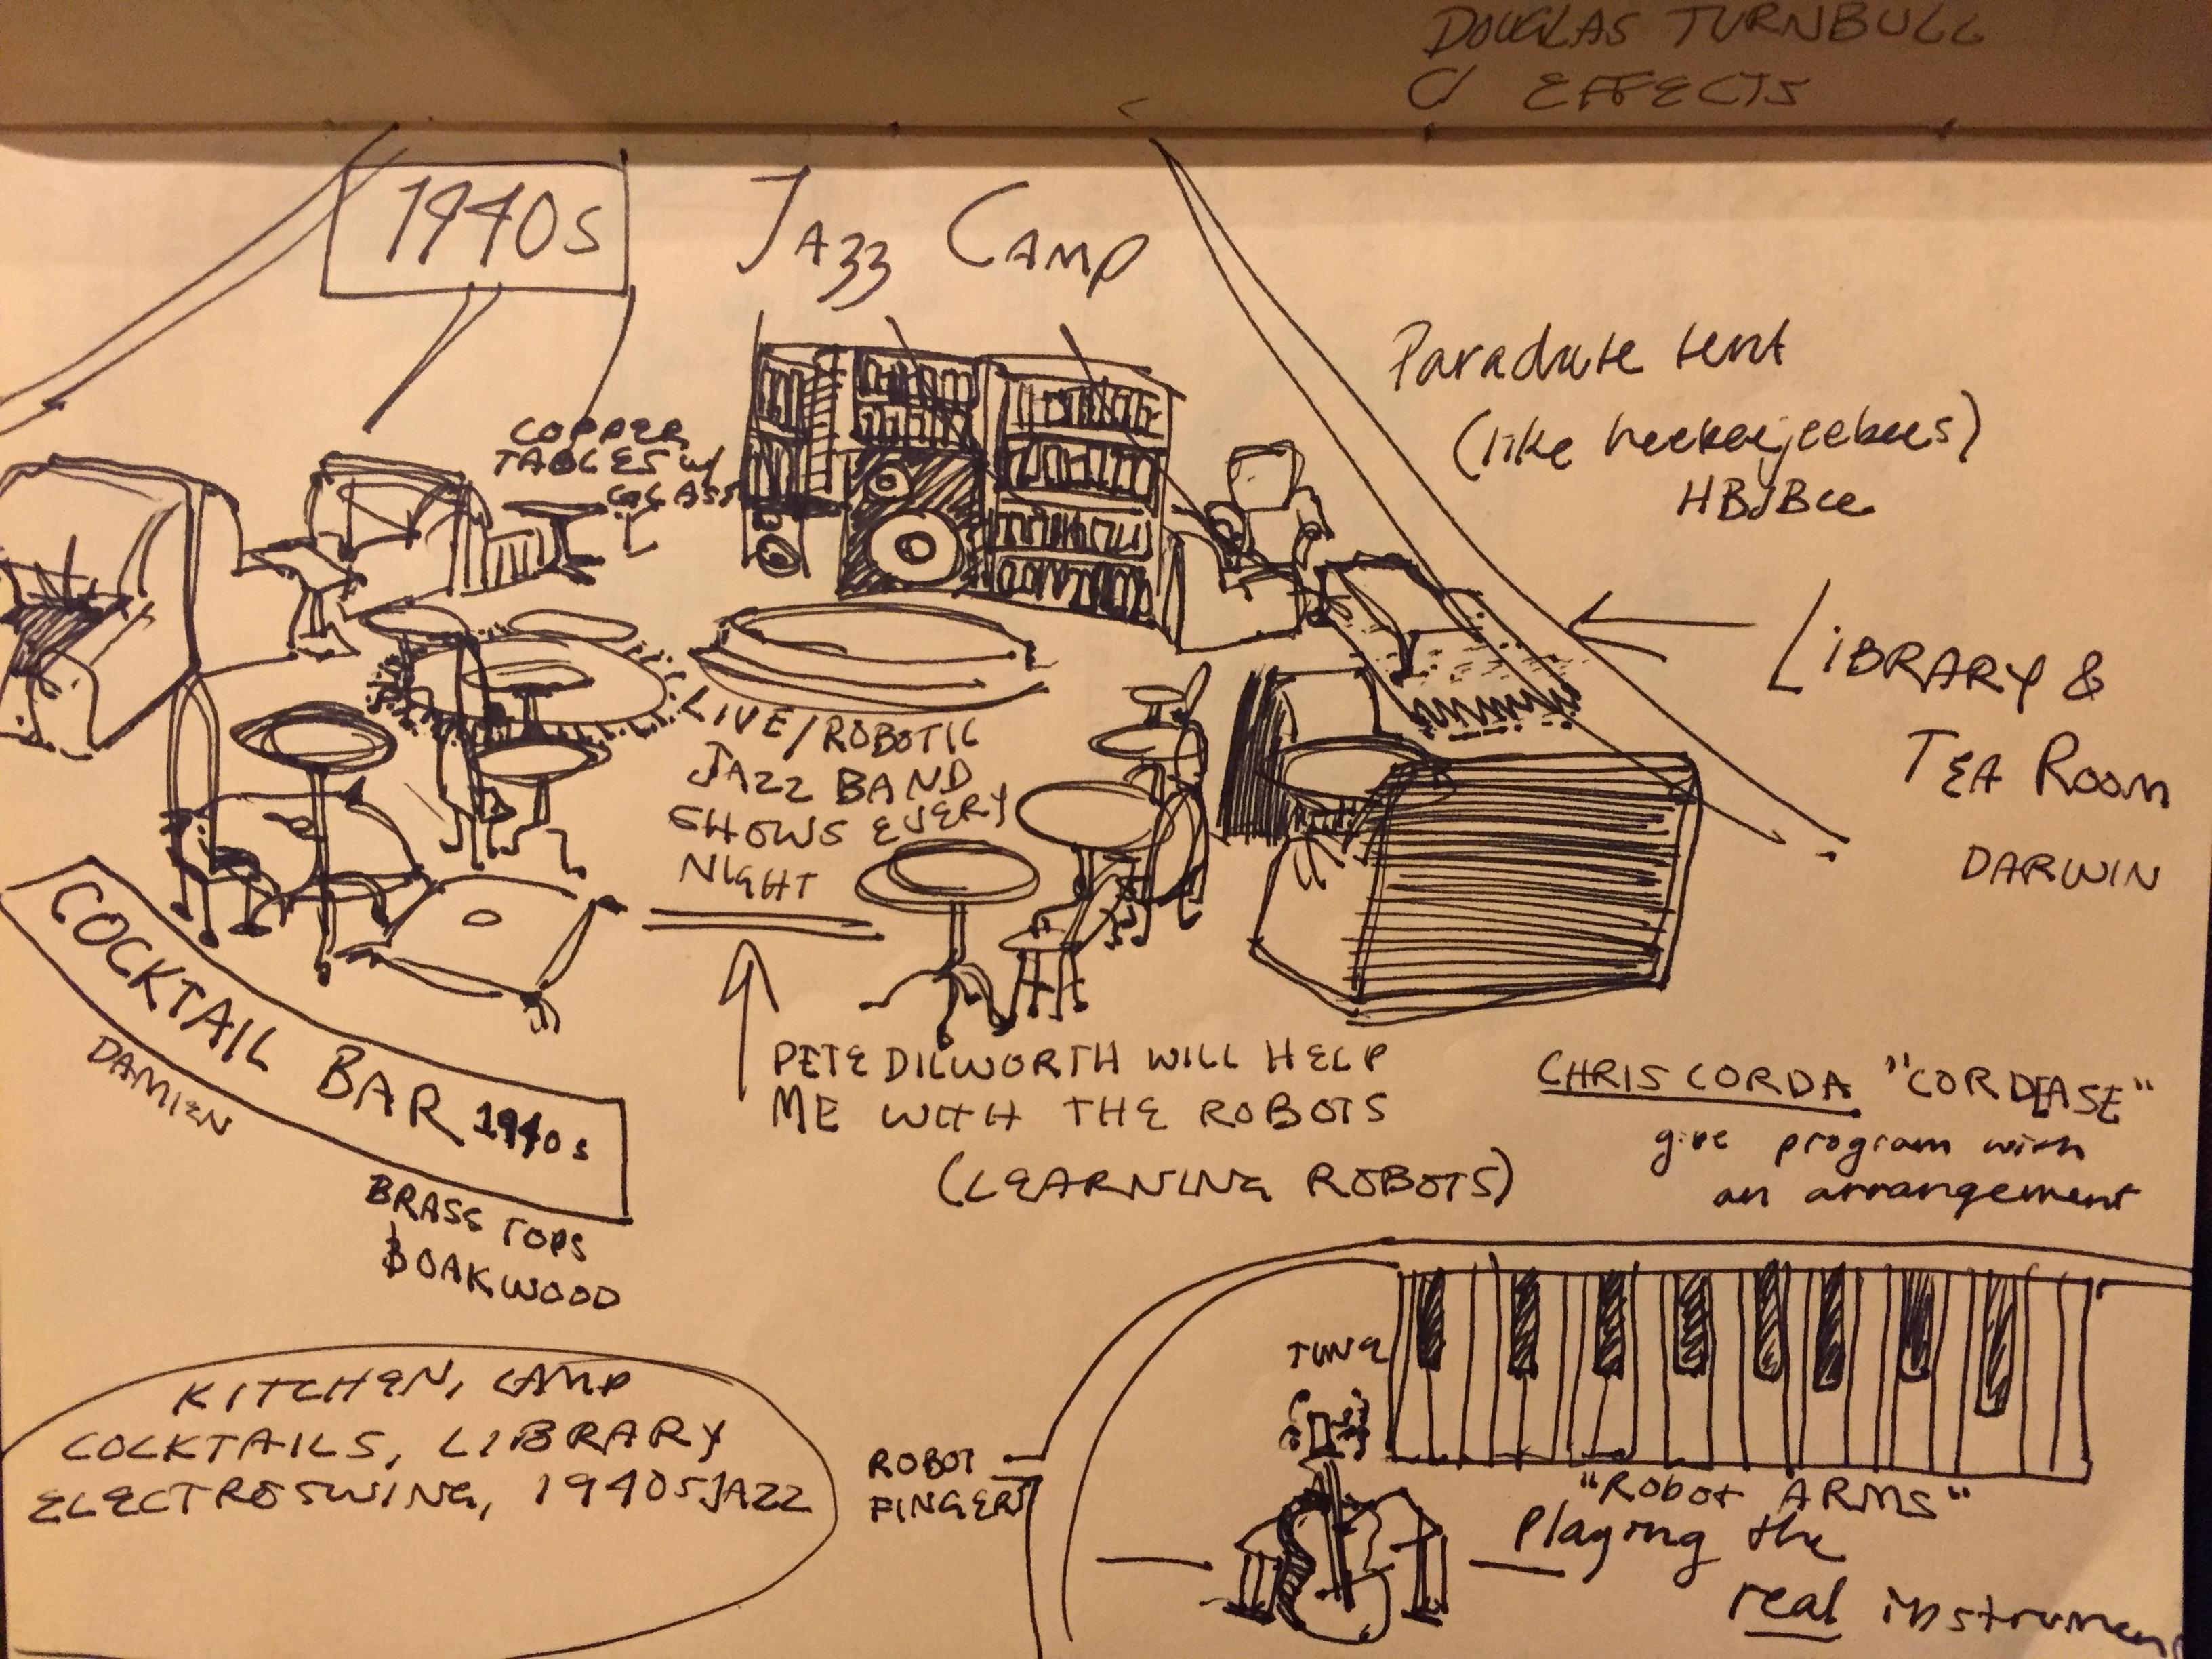 DOUGLAS TURNBULL
EFFECTS
1940s
JAZZ CAMP
Parachute tent
(like heebeejeebees)
HBJBee
COPPER
TABLES w/
GLASS
LIBRARY &
TEA ROOM
DARWIN
LIVE/ROBOTIC
JAZZ BAND
SHOWS EVERY
NIGHT
COCKTAIL BAR 1940s
DAMIEN
BRASS TOPS
& OAKWOOD
PETE DILWORTH WILL HELP
ME WITH THE ROBOTS
(LEARNING ROBOTS)
CHRIS CORDA "CORDEASE"
give program with
an arrangement
KITCHEN, CAMP
COCKTAILS, LIBRARY
ELECTROSWING, 1940S JAZZ
ROBOT
FINGER
TUNE
"ROBOT ARMS"
Playing the
real instrumen